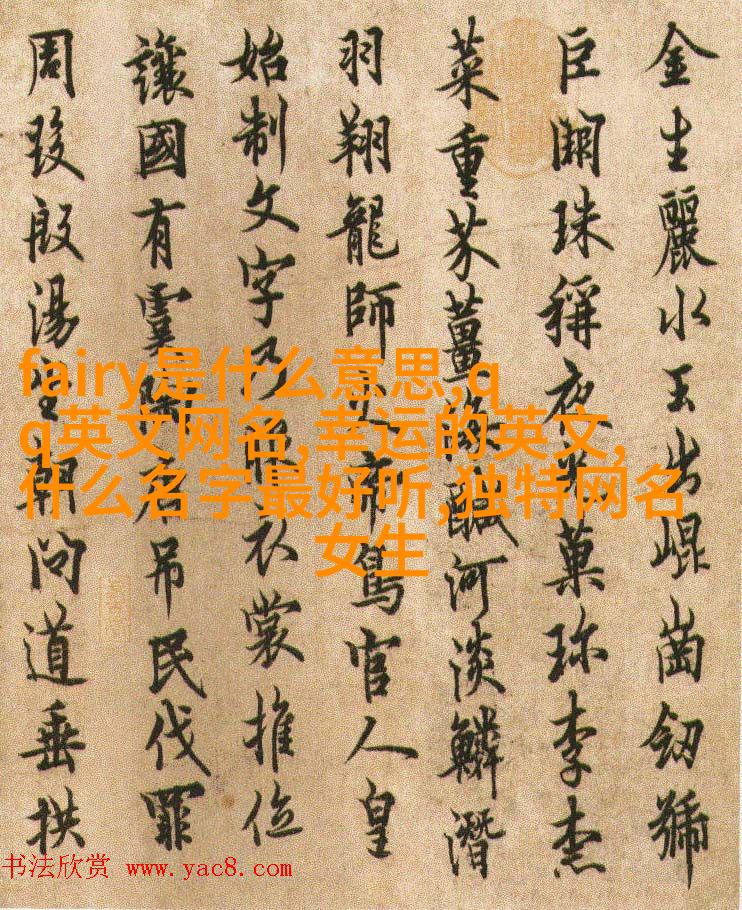 金生麗水玉出崐崗釼號
巨闕珠稱夜光菓珍李柰
菜重芥薑海醎河淡鱗潛
羽翔龍師火帝鳥官人皇
始制文字乃服衣裳推位
讓國有虞陶唐吊民伐罪
周發殷湯坐朝問道垂拱
fairy是什么意思,q
q英文网名,幸运的英文,
什么名字最好听,独特网名
女生
书法欣赏 www.yac8.com